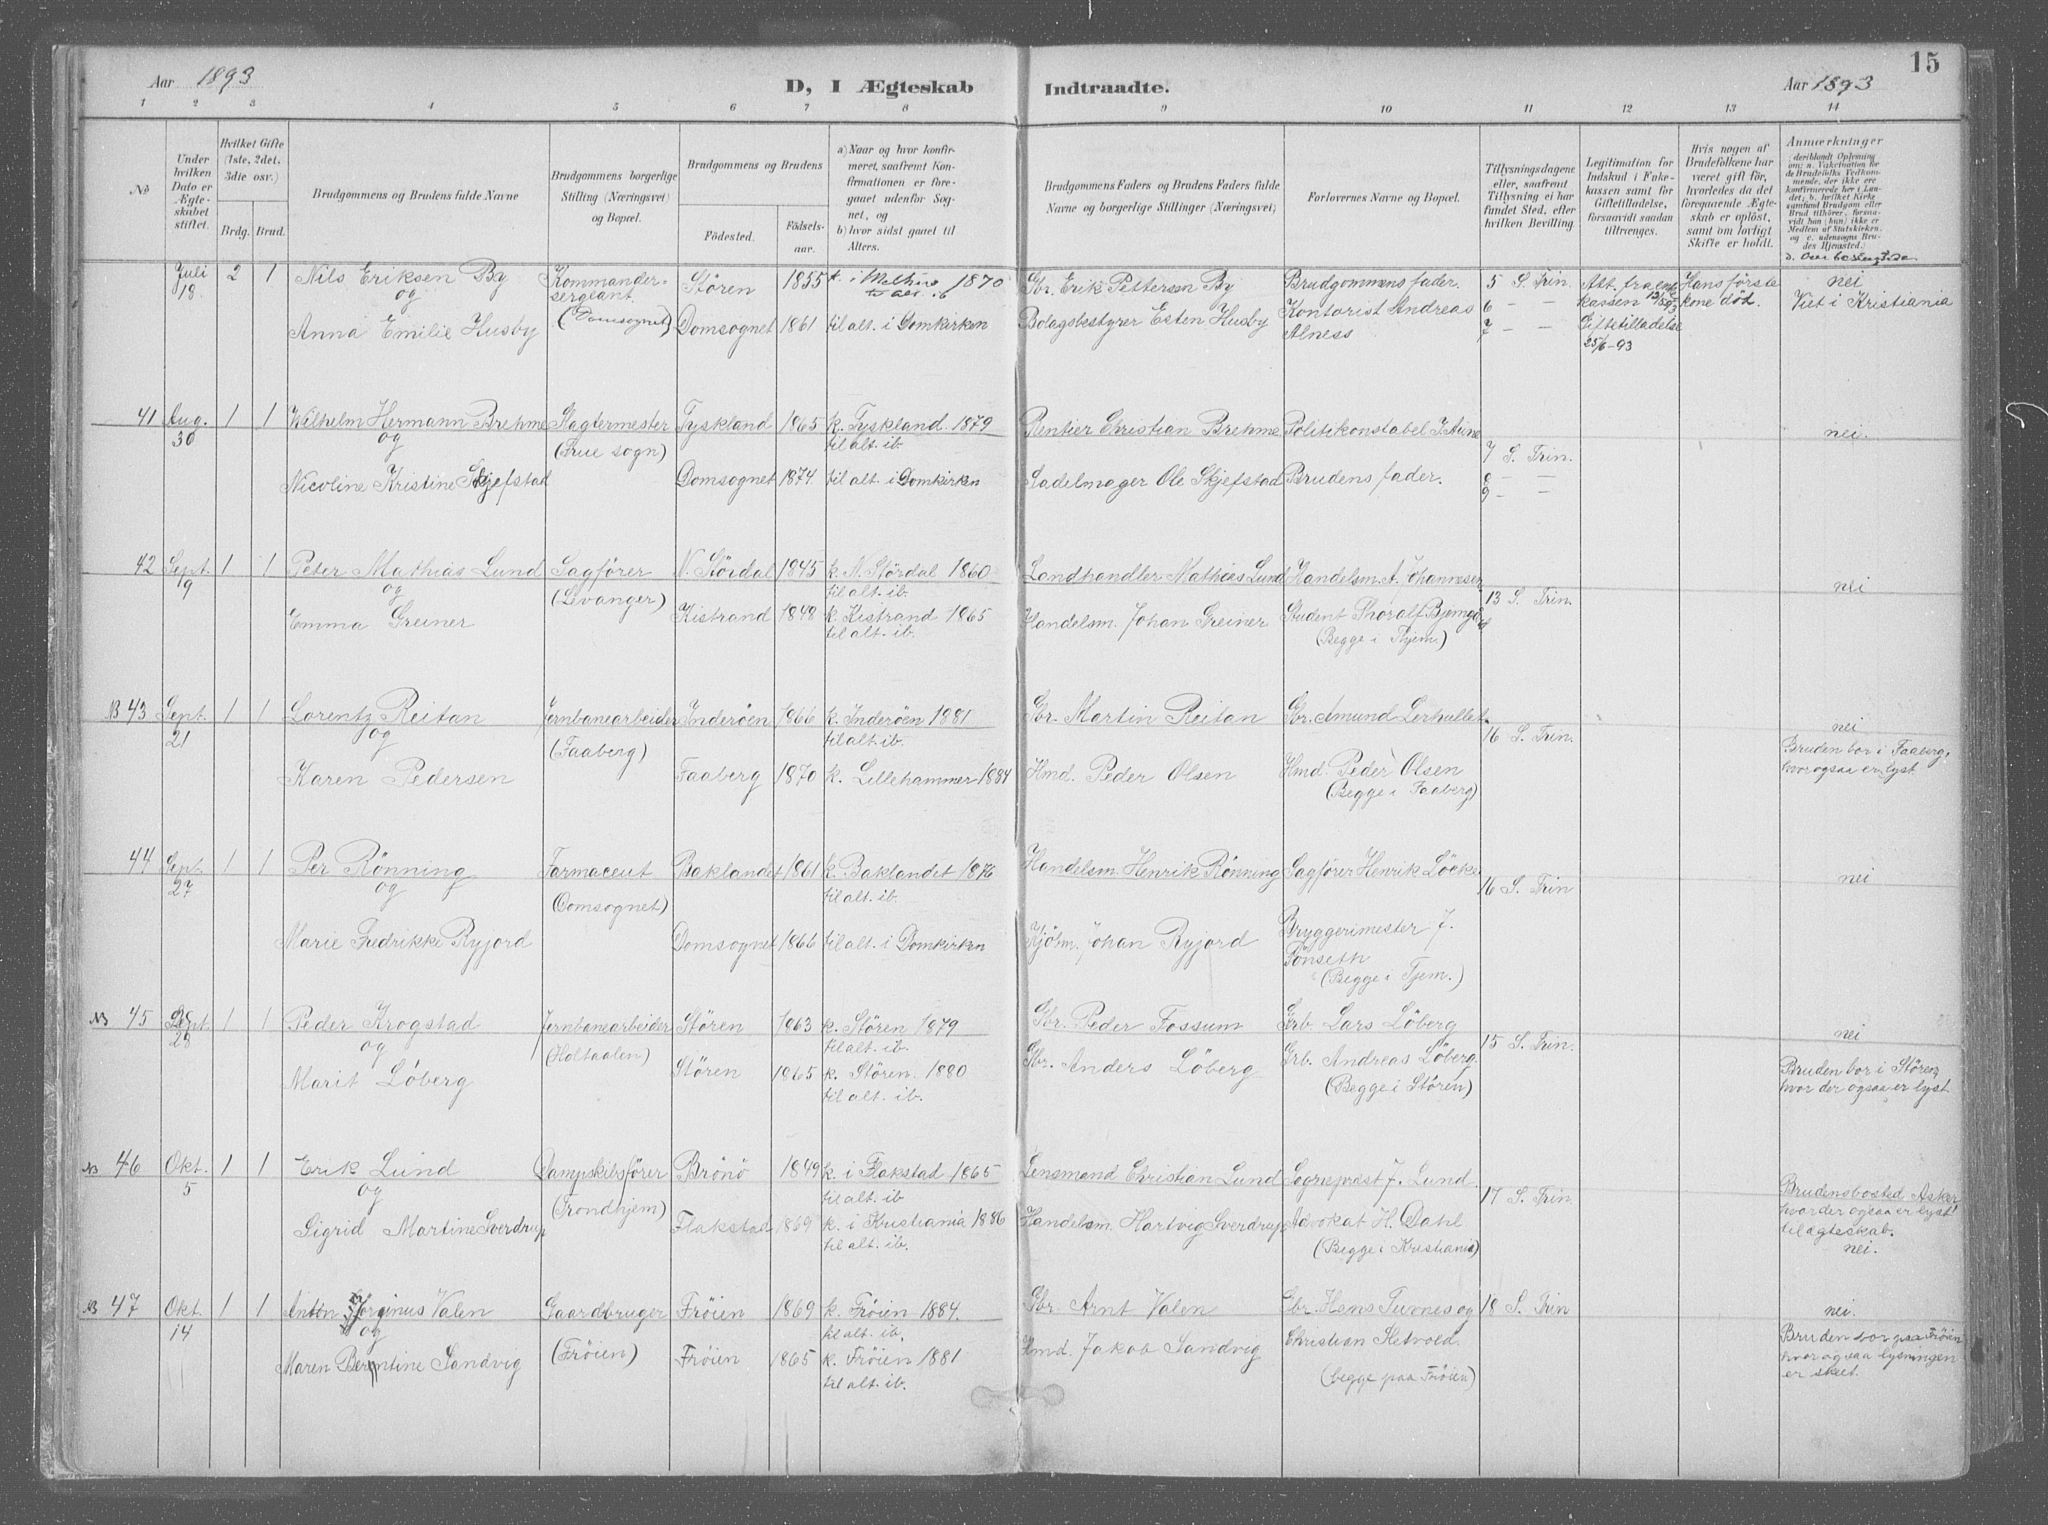 15
Aar 1893
D, I Ægteskab Indtraadte.
Aar 1893
1 2 3 4 5 6 7 8 9 10 11 12 13 14
No
Under hvilken Dato er Ægteskabet stiftet.
Hvilket Gifte (1ste, 2det, 3die osv.)
Brdg. Brud.
Brudgommens og Brudens fulde Navne
Brudgommens borgerlige Stilling (Næringsvei) og Bopæl.
Brudgommens og Brudens
Fødested.
Fødselsaar.
a) Naar og hvor konfirmeret, saafremt Konfirmationen er foregaaet udenfor Sognet, og
b) hvor sidst gaaet til Alters.
Brudgommens Faders og Brudens Faders fulde Navne og borgerlige Stillinger (Næringsvei)
Forlovernes Navne og Bopæl.
Tillysningsdagene eller, saafremt Tillysning ei har fundet Sted, efter hvilken Bevilling.
Legitimation for Indskud i Enkekassen samt for Giftetilladelse, forsaavidt saadan tiltrænges.
Hvis nogen af Brudefolkene har været gift før, hvorledes da det foregaaende Ægteskab er opløst, samt om lovligt Skifte er holdt.
Anmærkninger
Juli 18 2 1 Nils Eriksen By Kommandersergiant Stören 1855 1870 Gbr. Erik Pettersen By Brudgommens fader. 5 S. Trin. Att. fra enkekassen Hans første kone död nei
og (Domsognet) 6 — — Viet i Kristiania
Anna Emilie Husby Domsognet 1861 til alt. i Domkirken Bolagsbestyrer Esten Husby Kontorist Andreas Alness 7 — — Giftetilladelse 25/6-93
41 Aug. 30 1 1 Wilhelm Hermann Brehme Slagtermester Tyskland 1865 k. Tyskland 1879 Rentier Christian Brehme Politikonstabel J. Aune nei.
og (Frue sogn) til alt. ib. 7 S. Trin.
Nicoline Kristine Skjefstad Domsognet 1874 til alt. i Domkirken Sadelmager Ole Skjefstad Brudens fader. 8 — —
9 — —
42 Sept. 19 1 1 Peter Mathias Lund Sagförer N. Stördal 1845 k. N. Stördal 1860 Landhandler Mathias Lund Handelsm. A. Johannesen nei
og (Levanger) til alt. ib. 13 S. Trin.
Emma Greiner Kistrand 1848 k. Kistrand 1865 Handelsm. Johan Greiner Student Thoralf
til alt. ib.
NB 43 Sept. 21 1 1 Lorentz Reitan Jernbanearbeider Inderöen 1866 k. Inderöen 1881 Gbr. Martin Reitan Gbr. Amund Lerhullet nei
og (Faaberg) til alt. ib. 16 S. Trin. Bruden bor i Faaberg,
Karen Pedersen Faaberg 1870 k. Lillehammer 1884 Hmd. Peder Olsen Hmd. Peder Olsen hvor ogsaa er lyst
(Begge i Faaberg)
44 Sept. 27 1 1 Per Rönning Farmaceut Baklandet 1861 k. Baklandet 1876 Handelsm. Henrik Rönning Sagförer Henrik Löcke nei
og (Domsognet) til alt. ib. 16 S. Trin
Marie Fredrikke Ryjord Domsognet 1866 til alt. i Domkirken Kjöbm. Johan Ryjord Bryggerimester J. Tönseth
(Begge i Tjem.)
NB 45 Sept. 1 1 Peder Krogstad Jernbanearbeider Stören 1863 k. Stören 1879 Gbr. Peder Fossum Grb. Lars Löberg nei
og (Holtaalen) til alt. ib. 15 S. Trin.
Marit Löberg Stören 1865 k. Stören. 1880 Gbr. Anders Löberg Grb. Andreas Löberg Bruden bor i Stören,
til alt. ib. (Begge i Stören) hvor der ogsaa er lyst
NB 46 Okt. 5 1 1 Erik Lund Dampskibsförer Brönö 1849 k. i Flakstad 1865 Lensmand Christian Lund Sogneprest J. Lund Brudens bosted Asker
og (Trondhjem) til alt. ib 17 S. Trin. hvor der ogsaa er lyst
Sigrid Martine Sverdrup Flakstad 1869 k. i Kristiania 1886 Handelsm. Hartvig Sverdrup Advokat H. Dahl til ægteskab.
til alt. ib. (Begge i Kristiania) nei.
NB 47 Okt. 14 1 1 Anton Jörginus Valen Gaardbruger Fröien 1869 k. Fröien 1884. Gbr. Arnt Valen Gbr. Hans og 18 S. Trin nei.
og (Fröien) til alt. ib. Bruden bor paa Fröien
Maren Berntine Sandvig Fröien 1865 k. Fröien 1881 Hmd. Jakob Sandvig Christian hvor ogsaa lysningen
til alt. ib. (begge paa Fröien) er skeet.